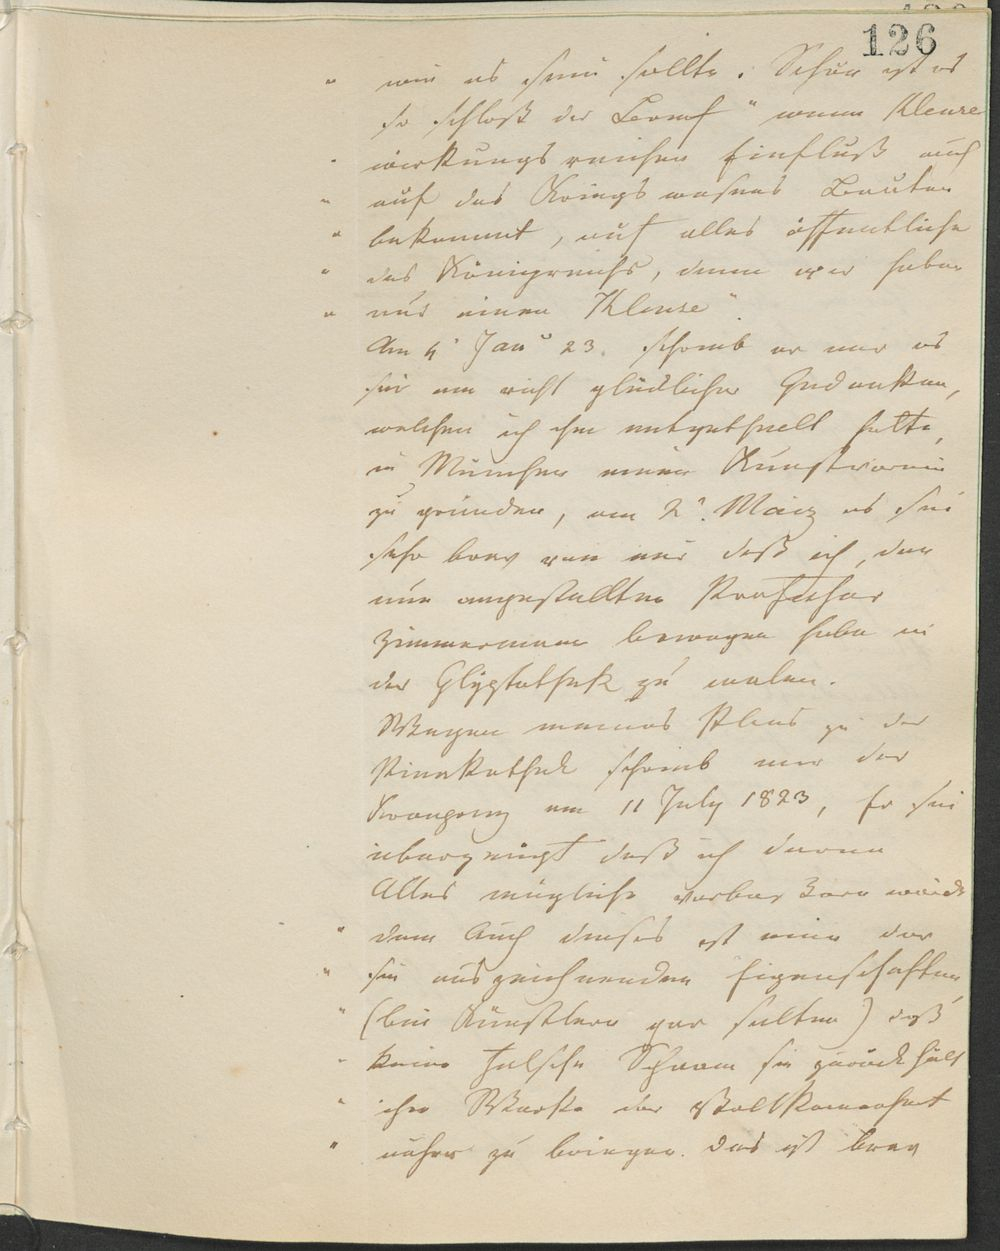 126
" wie es sein sollte. Schön ist es
so schloß der Brief " wenn Klenze
" wirkungsreichen Einfluß auch
" auf das Kriegswesens Bauten
" bekommt, auf alles öffentliche
" des Königreichs, denn wir haben
" nur einen Klenze".
Am 4' Jan 23. schrieb er mir es
sei ein recht glücklicher Gedanken,
welchen ich ihm mitgetheilt hatte,
in München einen Kunstverein
zu gründen, am 2'. März es sei
sehr brav von mir daß ich den
neu angestellten Professor
Zimmermann bewogen habe in
der Glyptothek zu malen.
Wegen meines Plans zu der
Pinakothek schrieb mir der
Kronprinz am 11 July 1823, Er sei
überzeugt daß ich daran
Alles mögliche verbessern würde
" denn Auch dieses ist eine der
" sie auszeichnenden Eigenschaften
" (bei Künstlern gar selten) daß
" keine falsche Scham sie zurück hält
" ihre Werke der Vollkommenheit
" näher zu bringen. Das ist brav